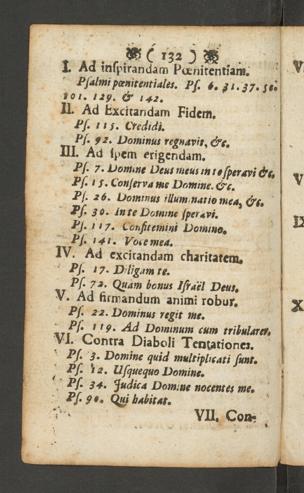 ( 132 )
I. Ad inspirandam Pœnitentiam.
Psalmi pœnitentiales. Ps. 6. 31. 37. 50.
101. 129. & 142.
II. Ad Excitandam Fidem.
Ps. 115. Credidi.
Ps. 92. Dominus regnavit, &c.
III. Ad spem erigendam.
Ps. 7. Domine Deus meus in te speravi &c.
Ps. 15. Conserva me Domine. &c.
Ps. 26. Dominus illuminatio mea, &c.
Ps. 30. In te Domine speravi.
Ps. 117. Confitemini Domino.
Ps. 141. Voce mea.
IV. Ad excitandam charitatem.
Ps. 17. Diligam te.
Ps. 72. Quam bonus Israël Deus.
V. Ad firmandum animi robur.
Ps. 22. Dominus regit me.
Ps. 119. Ad Dominum cum tribularer.
VI. Contra Diaboli Tentationes.
Ps. 3. Domine quid multiplicati sunt.
Ps. 12. Usquequo Domine.
Ps. 34. Judica Domine nocentes me.
Ps. 90. Qui habitat.
VII. Con-